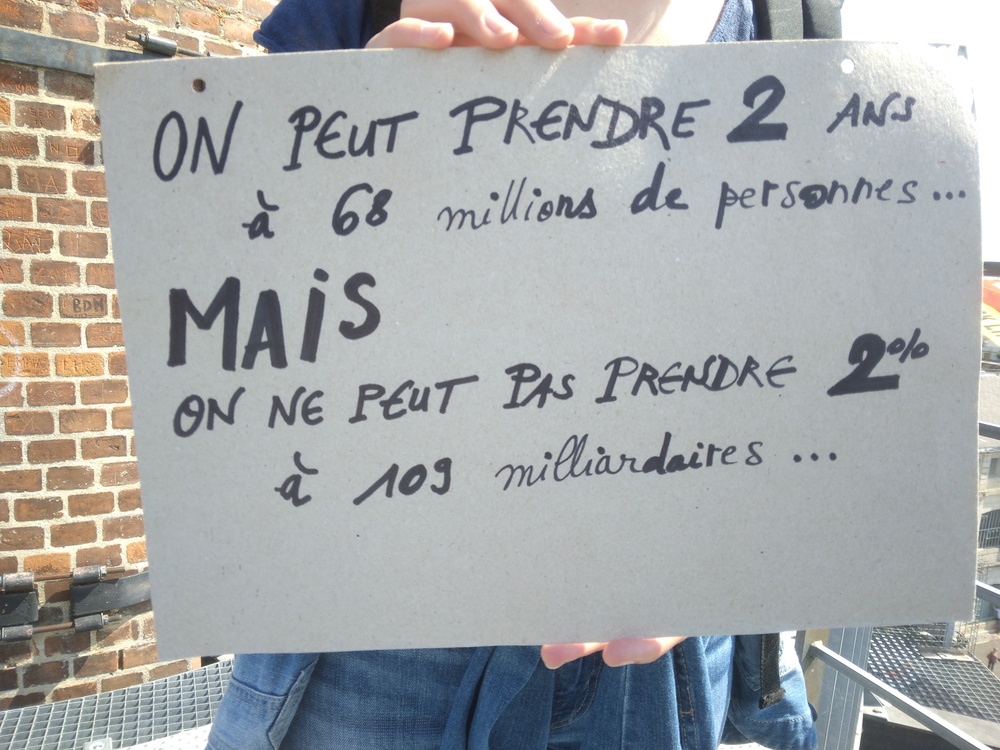 ON PEUT PRENDRE 2 ANS
à 68 millions de personnes...
MAIS
ON NE PEUT PAS PRENDRE 2%
à 109 milliardaires ...
BDM